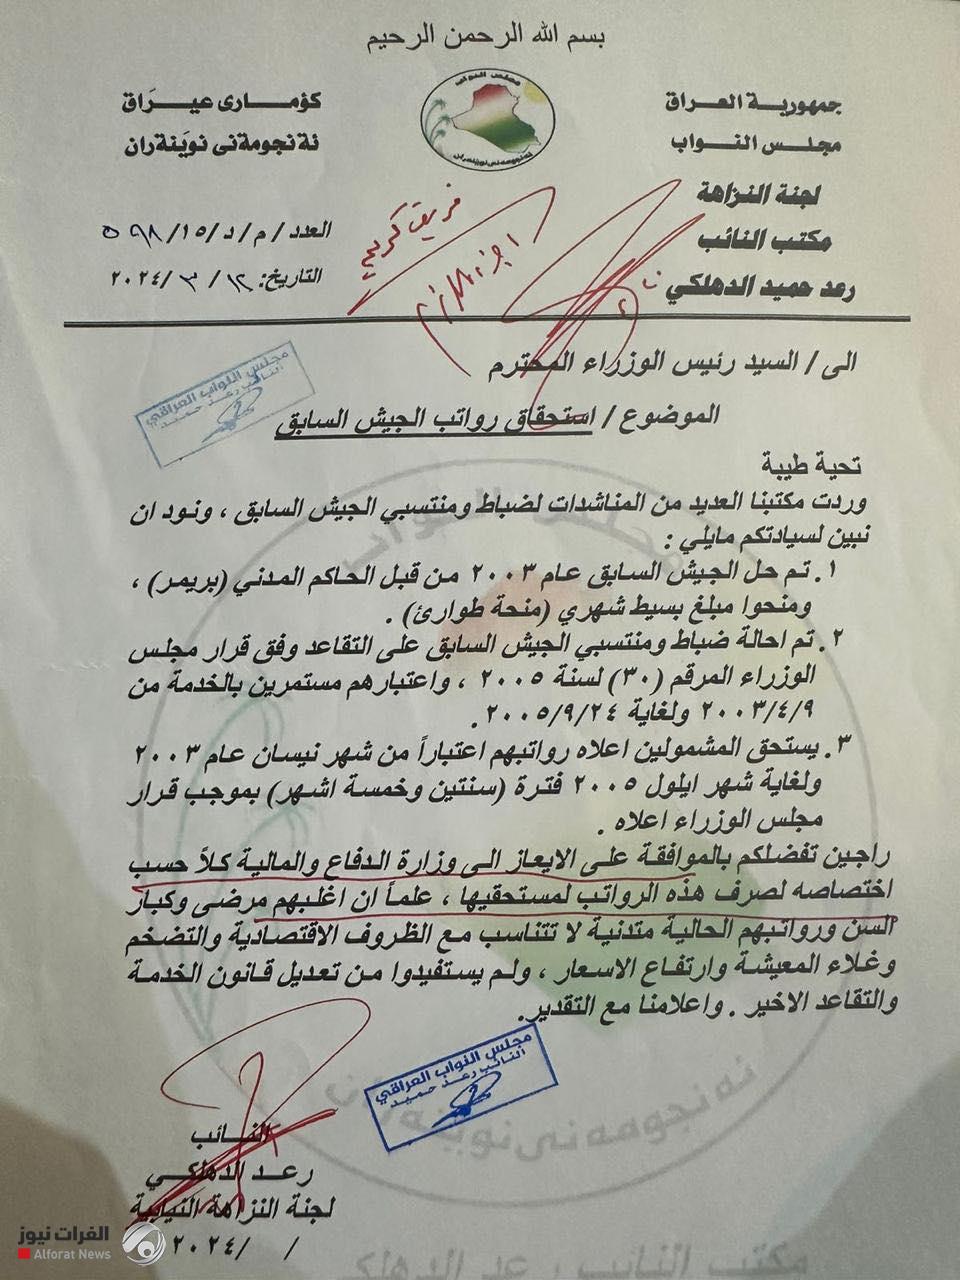 بسم الله الرحمن الرحيم
جمهورية العراق
مجلس النواب
لجنة النزاهة
مكتب النائب
رعد حميد الدهلكي
مجلس النواب
ئه نجومه نى نوينه ران
كؤمـــارى عيـــرَاق
ئة نجومةنى نويَنةران
العدد / م / د / ١٥/ ٥٩٨
التاريخ: ١٢/ ٣ /٢٠٢٤
فريق كريم
الى / السيد رئيس الوزراء المحترم
مجلس النواب العراقي
النائب رعد حميد
الموضوع / استحقاق رواتب الجيش السابق
تحية طيبة
وردت مكتبنا العديد من المناشدات لضباط ومنتسبي الجيش السابق ، ونود ان
نبين لسيادتكم مايلي :
١. تم حل الجيش السابق عام ٢٠٠٣ من قبل الحاكم المدني (بريمر) ،
ومنحوا مبلغ بسيط شهري (منحة طوارئ) .
٢. تم احالة ضباط ومنتسبي الجيش السابق على التقاعد وفق قرار مجلس
الوزراء المرقم (٣٠) لسنة ٢٠٠٥ ، واعتبارهم مستمرين بالخدمة من
٢٠٠٣/٤/٩ ولغاية ٢٠٠٥/٩/٢٤ .
٣. يستحق المشمولين اعلاه رواتبهم اعتباراً من شهر نيسان عام ٢٠٠٣
ولغاية شهر ايلول ٢٠٠٥ فترة (سنتين وخمسة اشهر) بموجب قرار
مجلس الوزراء اعلاه .
راجين تفضلكم بالموافقة على الايعاز الى وزارة الدفاع والمالية كلاً حسب
اختصاصه لصرف هذه الرواتب لمستحقيها ، علماً ان اغلبهم مرضى وكبار
السن ورواتبهم الحالية متدنية لا تتناسب مع الظروف الاقتصادية والتضخم
وغلاء المعيشة وارتفاع الاسعار ، ولم يستفيدوا من تعديل قانون الخدمة
والتقاعد الاخير . واعلامنا مع التقدير.
مجلس النواب العراقي
النائب رعد حميد
النــائب
رعـد الدهلكـي
لجنة النزاهة النيابية
/ /٢٠٢٤
ئه نجومه نى نوينه ران
مكتب النائب / رعد الدهلكي
الفرات نيوز
Alforat News